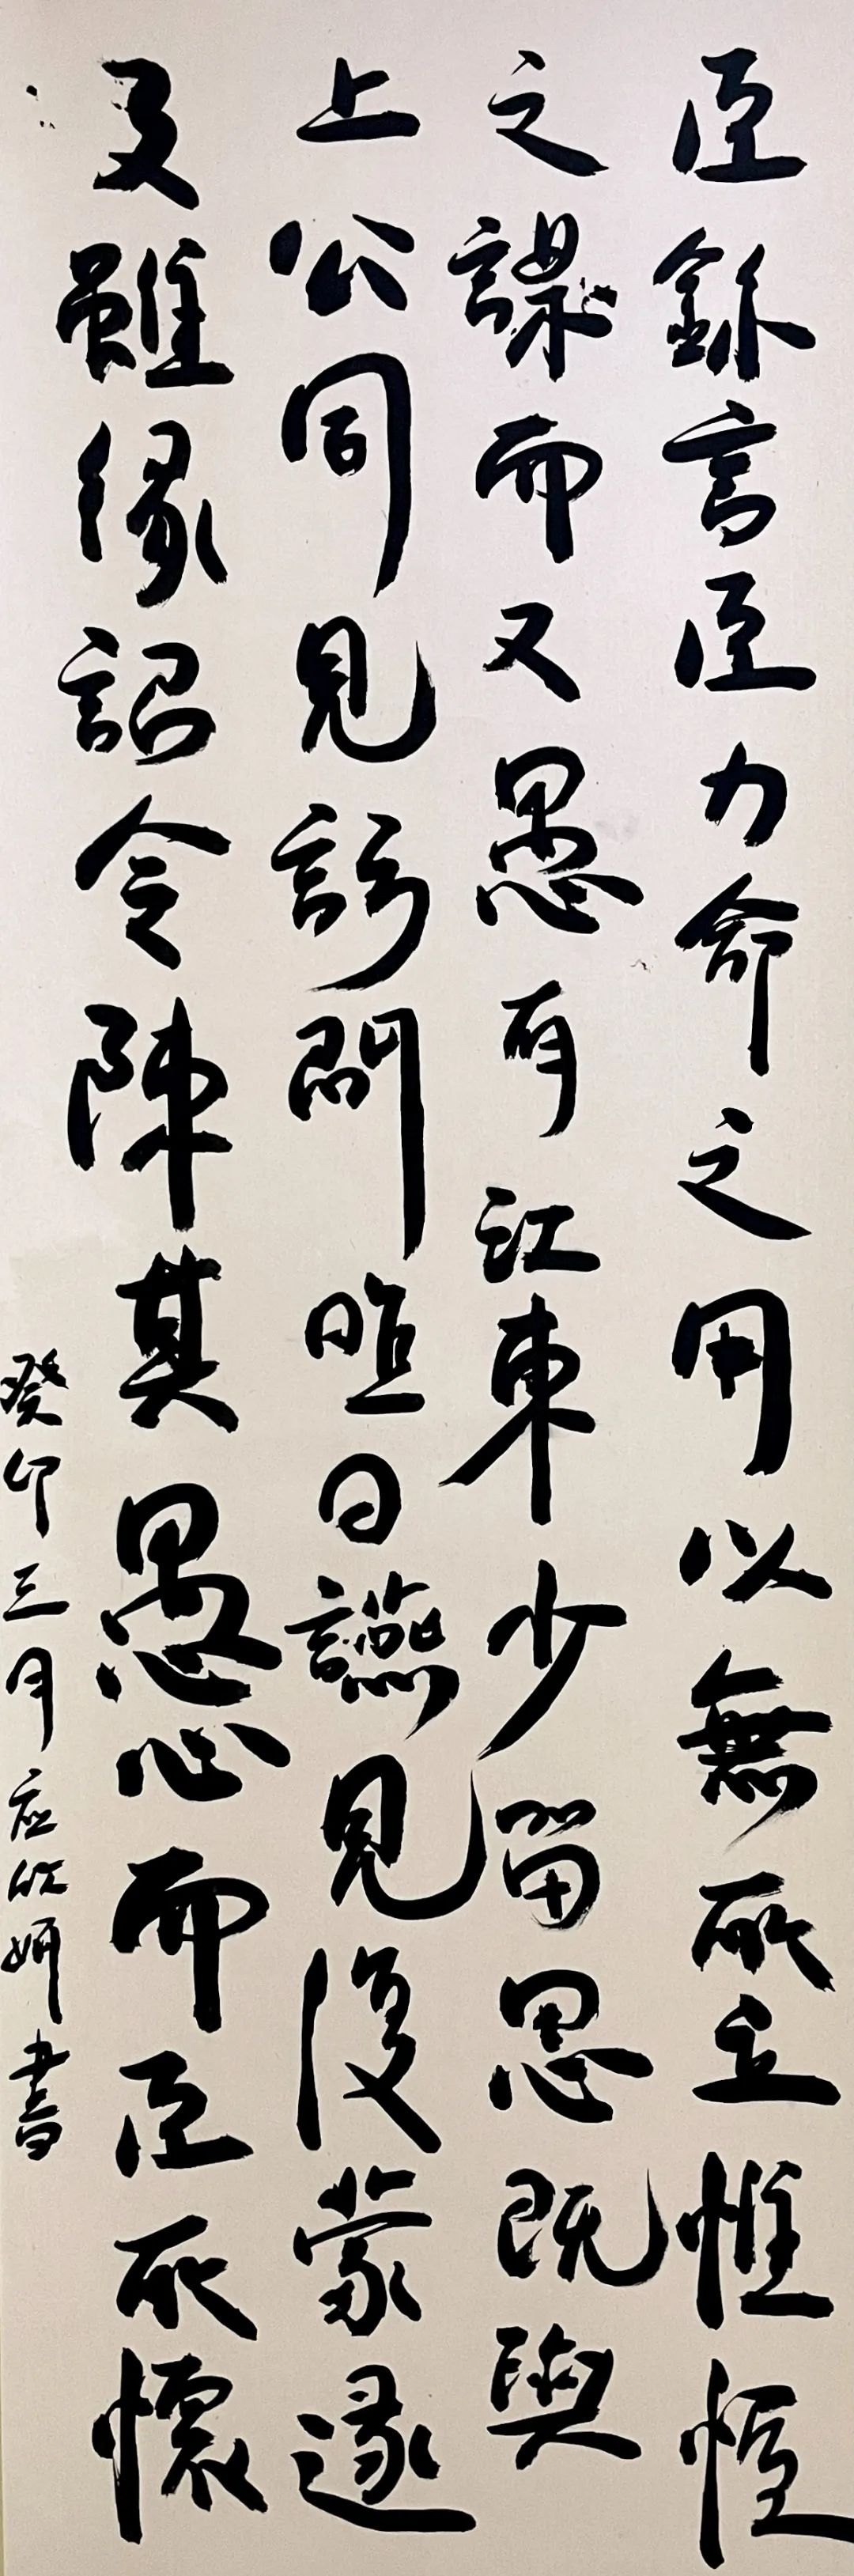 臣繇言臣力命之用以無所立惟幄
之謀而又愚有江東少留思既與
上公同見訪問暄日讌見復蒙逮
及雖緣詔令陳其愚心而臣所懷
癸卯三月应欣妍書